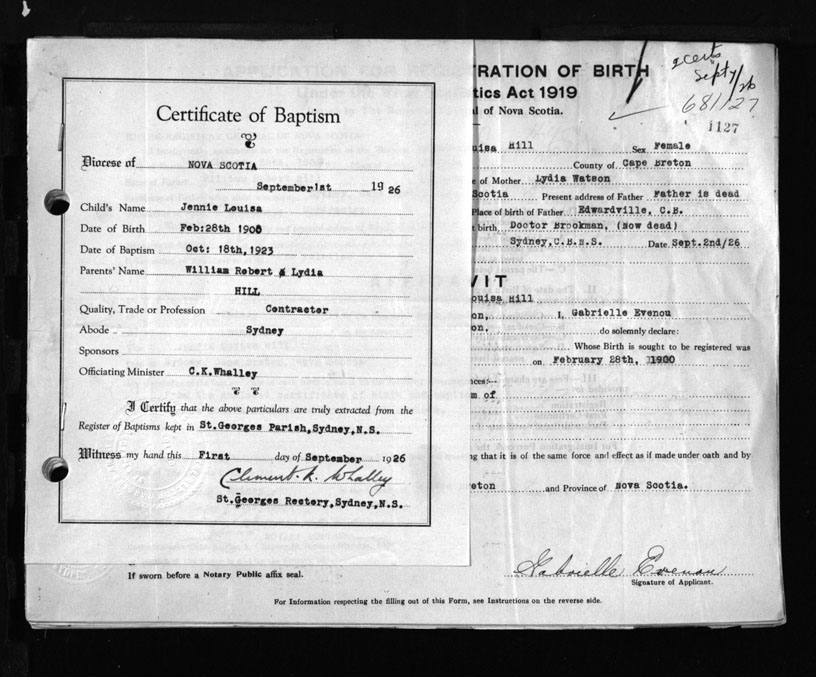 Certificate of Baptism
Diocese of NOVA SCOTIA
September 1st 1926
Child's Name Jennie Louisa
Date of Birth Feb: 28th 1900
Date of Baptism Oct: 18th, 1923
Parents' Name William Robert & Lydia
HILL
Quality, Trade or Profession Contractor
Abode Sydney
Sponsors
Officiating Minister C.K.Whalley
I Certify that the above particulars are truly extracted from the
Register of Baptisms kept in St.Georges Parish, Sydney, N.S.
Witness my hand this First day of September 1926
Clement. K. Whalley
St.Georges Rectory, Sydney, N.S.
RATION OF BIRTH
tics Act 1919
l of Nova Scotia.
2 certs
Sept 7/26
681127
1127
uisa Hill Sex Female
County of Cape Breton
e of Mother Lydia Watson
Scotia Present address of Father Father is dead
Place of birth of Father Edwardville, C.B.
t birth, Doctor Brookman, (Now dead)
Sydney, C.B.N.S. Date Sept. 2nd/26
VIT
ouisa Hill
on, I, Gabrielle Evenou
on. do solemnly declare:
Whose Birth is sought to be registered was
on February 28th, 1900
nces:—
m of
ng that it is of the same force and effect as if made under oath and by
reton and Province of Nova Scotia.
Gabrielle Evenou
Signature of Applicant.
If sworn before a Notary Public affix seal.
For Information respecting the filling out of this Form, see Instructions on the reverse side.